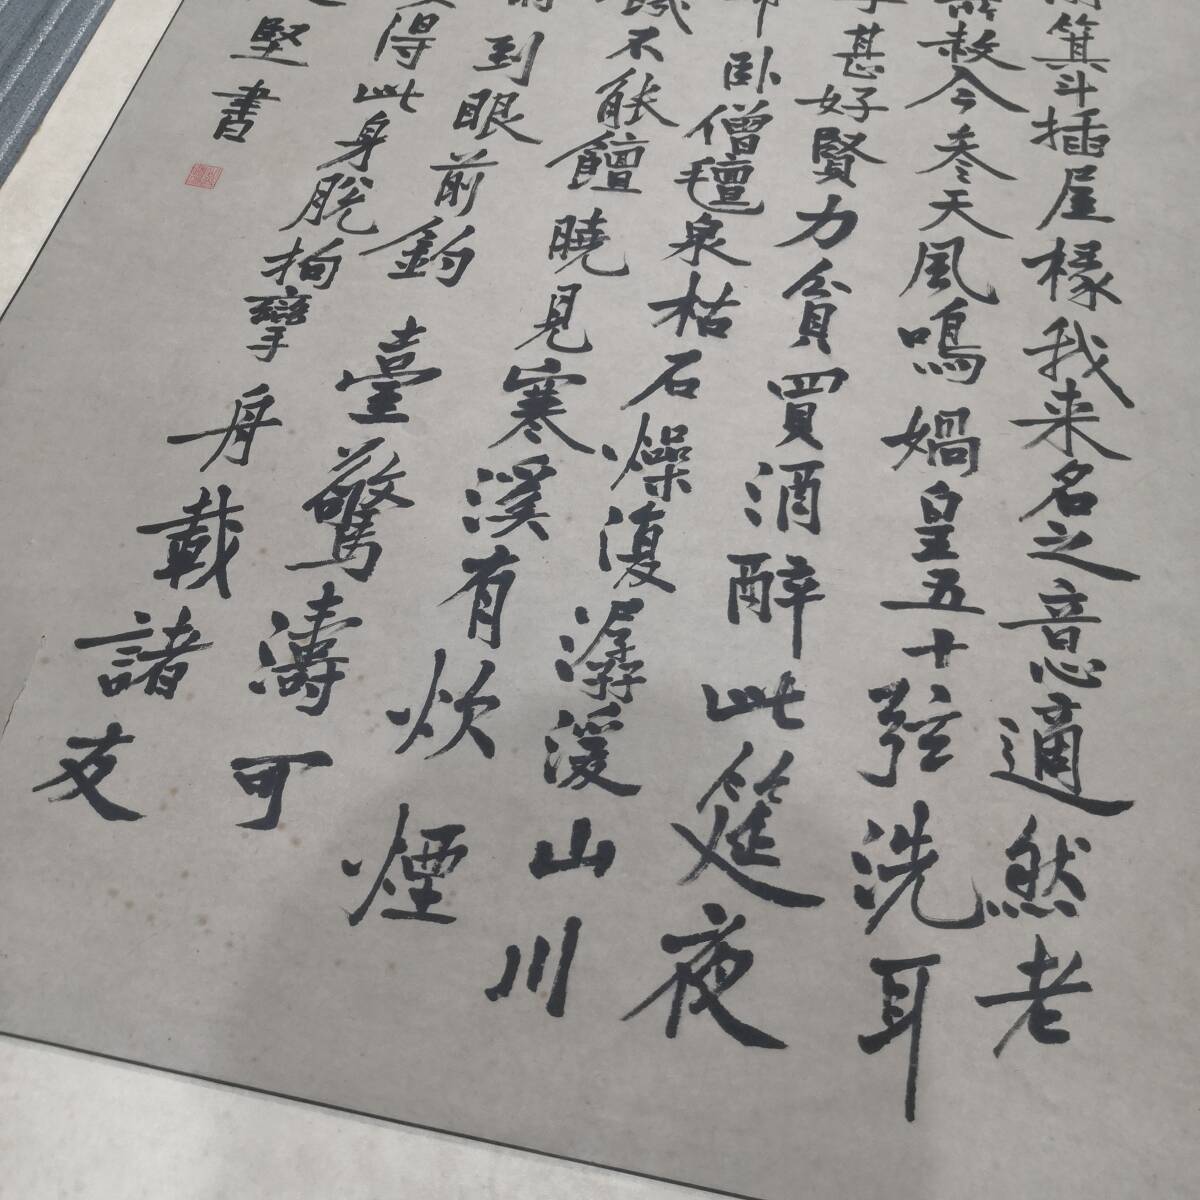 箕斗插屋椽我来名之意適然老
赦今参天風鳴媧皇五十弦洗耳
甚好賢力貧買酒醉此筵夜
卧僧氈泉枯石燥復潺湲山川
不能饘曉見寒溪有炊煙
到眼前釣臺驚濤可
得此身脫拘攣舟載諸友
堅書